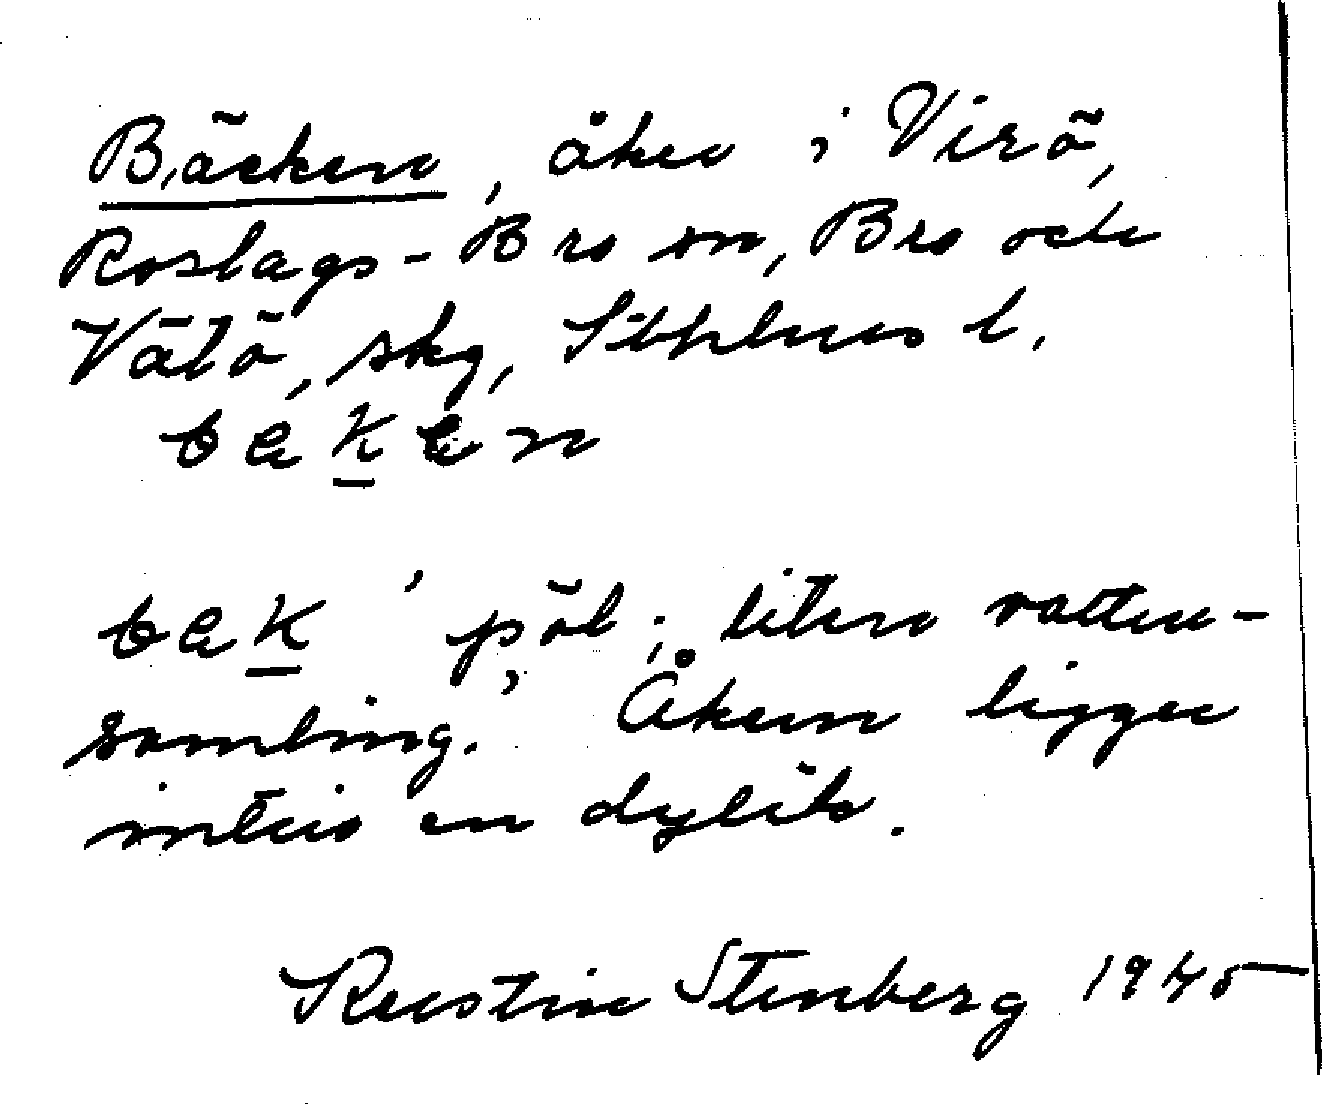 Bäcken, åker i Virö,
Roslags-Bro sn, Bro och
Vätö, skg, Sthlms l.
bęḵen
bęḵ 'pöl; liten vatten-
samling.' Åkern ligger
intill en dylik.
Kerstin Stenberg 1945